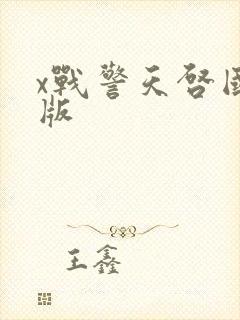 x戰警天啓
版
王鑫